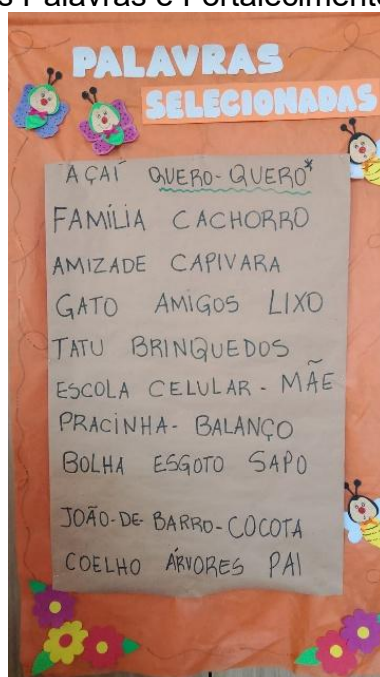 s Palavras e Fortalecimento
PALAVRAS
SELECIONADAS
AÇAÍ QUERO-QUERO*
FAMÍLIA CACHORRO
AMIZADE CAPIVARA
GATO AMIGOS LIXO
TATU BRINQUEDOS
ESCOLA CELULAR - MÃE
PRACINHA - BALANÇO
BOLHA ESGOTO SAPO
JOÃO-DE-BARRO - COCOTA
COELHO ÁRVORES PAI